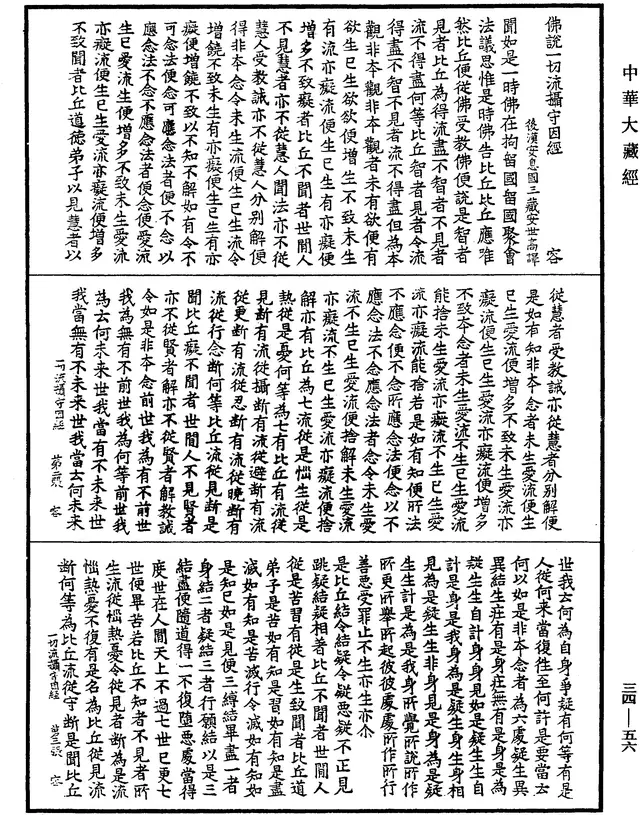 中華大藏經
佛說一切流攝守因經 容
後漢安息國三藏安世高譯
聞如是一時佛在拘留國留國聚會
法議思惟是時佛告比丘比丘應唯
然比丘便從佛受教佛便說是智者
見者比丘為得流盡不智者不見者
流不得盡何等比丘智者見者令流
得盡不智不見者流不得盡但為本
觀非本觀非本觀者未有欲便有
欲生已生欲欲便增生不致未生
有流亦癡流便生已生有亦癡便
增多不致癡者比丘不聞者世間人
不見慧者亦不從慧人聞法亦不從
慧人受教誡亦不從慧人分別解便
得非本念令未生流便生已生流令
增饒不致未生有亦癡便生已有亦
癡便增饒不致以不知不解如有令不
可念法便念可應念法者便不念以
應念法不念不應念法者便念便愛流
生已愛流生便增多不致未生愛流
亦癡流便生已生愛流亦癡流便增多
不致聞者比丘道德弟子以見慧者以
從慧者受教誡亦從慧者分別解便
是如有知非本念者未生愛流便生
已生愛流便增多不致未生愛流亦
癡流便生已生愛流亦癡流便增多
不致本念者未生愛流不生已生愛流
能捨未生愛流亦癡流不生已生愛
流亦癡流能捨若是如有知便所法
不應念便不念所應念法便念以不
應念法不念應念法者念令未生愛
流不生已生愛流便捨解未生愛流
亦癡流不生已生愛流亦癡流便捨
解亦有比丘為七流從是惱生從是
熱從是憂何等為七有比丘有流從
見斷有流從攝斷有流從避斷有流
從更斷有流從忍斷有流從曉斷有
流從行念斷何等比丘流從見斷是
聞比丘癡不聞者世間人不見賢者
亦不從賢者解亦不從賢者解教誡
令如是非本念前世我為有不前世
我為無有不前世我為何等前世我
為云何未來世我當有不未來世
我當無有不未來世我當云何未來
一切流攝守因經 第二張 容
世我云何為自身爭疑有何等有是
人從何來當復徃至何許是要當去
何以如是非本念者為六處疑生異
異結生在有是身在無有是身是為
疑生生自計身身見如是疑生生自
計是身是我身為是疑生身生身相
見為是疑生生非身見是身為是疑
生生計是為是我身所覺所說所作
所更所舉所起彼彼處處所作所行
善惡受罪止不生亦生亦尒
是比丘結令結疑令疑惡疑不正見
跳疑結疑相著比丘不聞者世間人
從是苦習有從是生致聞者比丘道
弟子是苦如有知是習如有知是盡
滅如有知是苦滅行令滅如有知如
是知已如是見便三縛結畢盡一者
身結二者疑結三者行領結以是三
結盡便隨道得一不復墮惡處當得
度世在人間天上不過七世已更七
世便畢苦若比丘不知者不見者所
生流從惱熱憂令從見者斷為是流
惱熱憂不復有是名為比丘從見流
斷何等為比丘流從守斷是聞比丘
一切流攝守因經 第三張 容
三四—五六